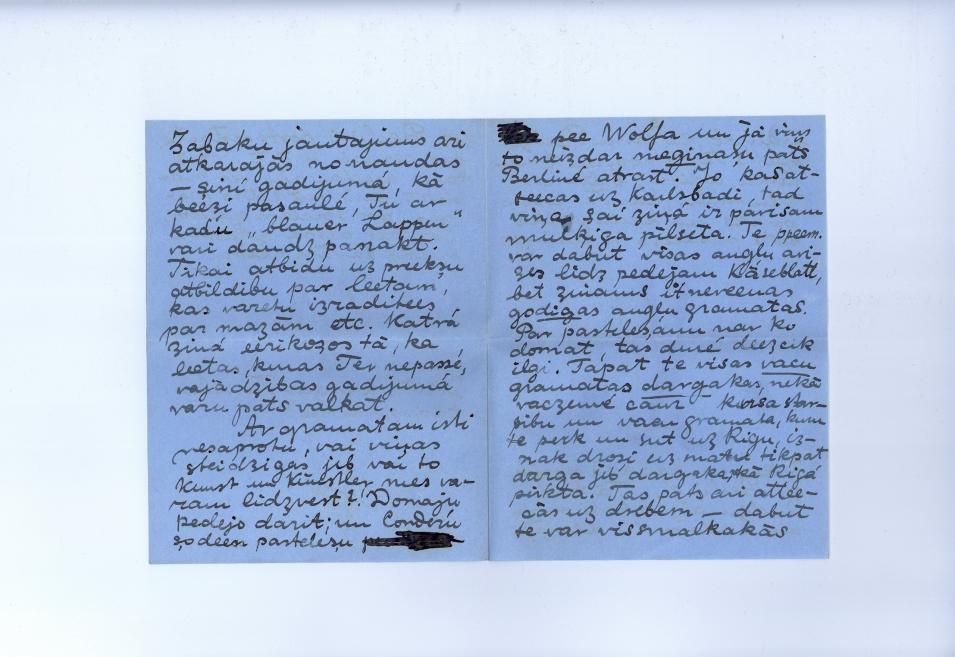 Zabaku jautajums ari
atkarajās no naudas
— šinī gadijumā, kā
beezi pasaulē, Tu ar
kadu „blauer Lappen"
vari daudz panakt.
Tikai atbidu uz preekšu
atbildibu par leetam,
kas varetu izraditees
par mazām etc. Katrā
ziņā eerikošos tā, ka
leetas, kuras Ter nepassē,
vajadzības gadijumā
varu pats valkat.
Ar gramatam isti
nesaprotu, vai viņas
steidzigas jeb vai to
Kunst un Künstler mes va-
ram lidzvest?! Domaju
pedejo darit; un Conderu
šodeen pastelešu
pee Wolfa un jā viņš
to neizdar meģinašu pats
Berlinē atrast. Jo kas at-
teecas uz Karlsbadi, tad
viņa šai ziņā ir pārisam
muļķiga pilseta. Te peem.
var dabūt visas angļu avi-
zes lidz pedejam Käseblatt,
bet zinams it neveenas
godigas angļu gramatas.
Par pastelešanu nav ko
domat, tas durē deezcik
ilgi. Tapat te visas vacu
gramatas dargakas, nekā
vaczemē caur kursa star-
pibu un vacu gramata, kuru
te perk un sut uz Rigu, iz-
nak droši uz matu tikpat
darga jeb dargaka, kā Rigā
pirkta. Tas pats ari attee-
cās uz drebem — dabut
te var vissmalkakās